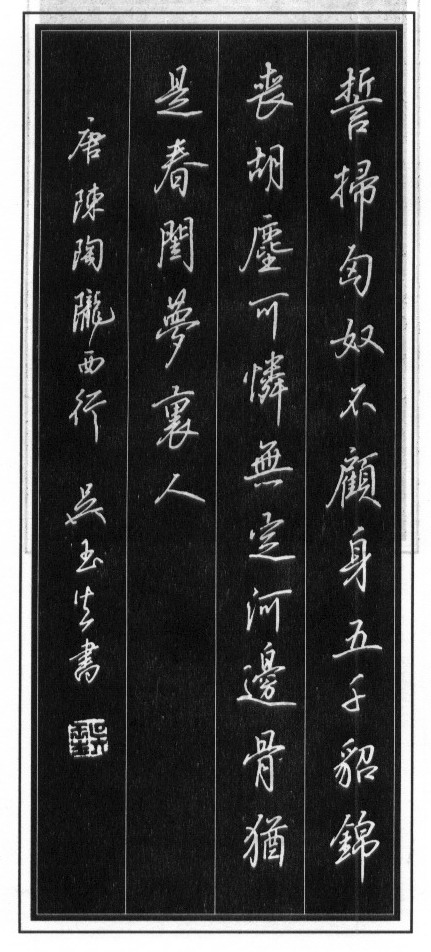 誓掃匈奴不顧身五千貂錦
喪胡塵可憐無定河邊骨猶
是春閨夢裏人
唐陳陶隴西行 吳玉生書